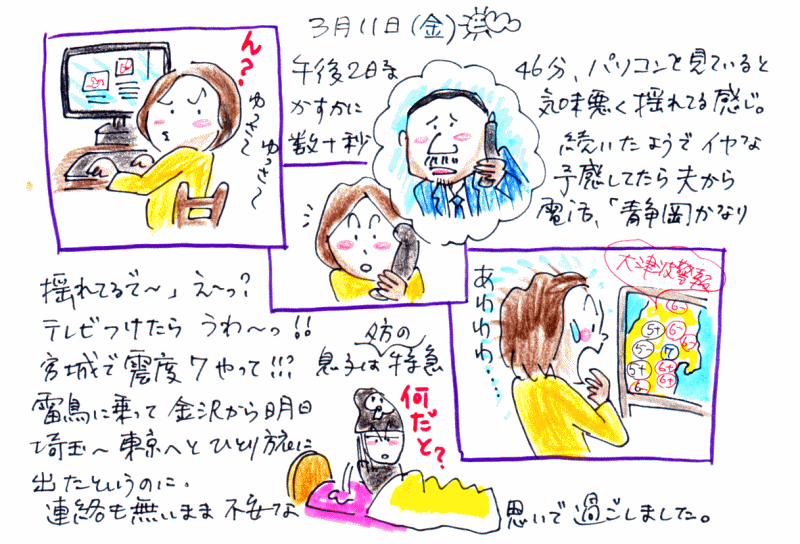 3月11日(金)
ん?
ゆっさ〜
ゆっさ〜
午後2時46分、パソコンを見ていると
かすかに気味悪く揺れてる感じ。
数十秒続いたようでイヤな
予感してたら夫から
電話、「静岡かなり
揺れてるで〜」え〜っ?
テレビつけたら うわ〜っ!!
宮城で震度7やって!!? 息子は夕方の特急
雷鳥に乗って金沢から明日
埼玉〜東京へとひとり旅に
出たというのに。
連絡も無いまま不安な思いで過ごしました。
あわわわ・・・・
大津波警報
6-
5+ 6-
5- 7
5+ 6+
6-
何だと?